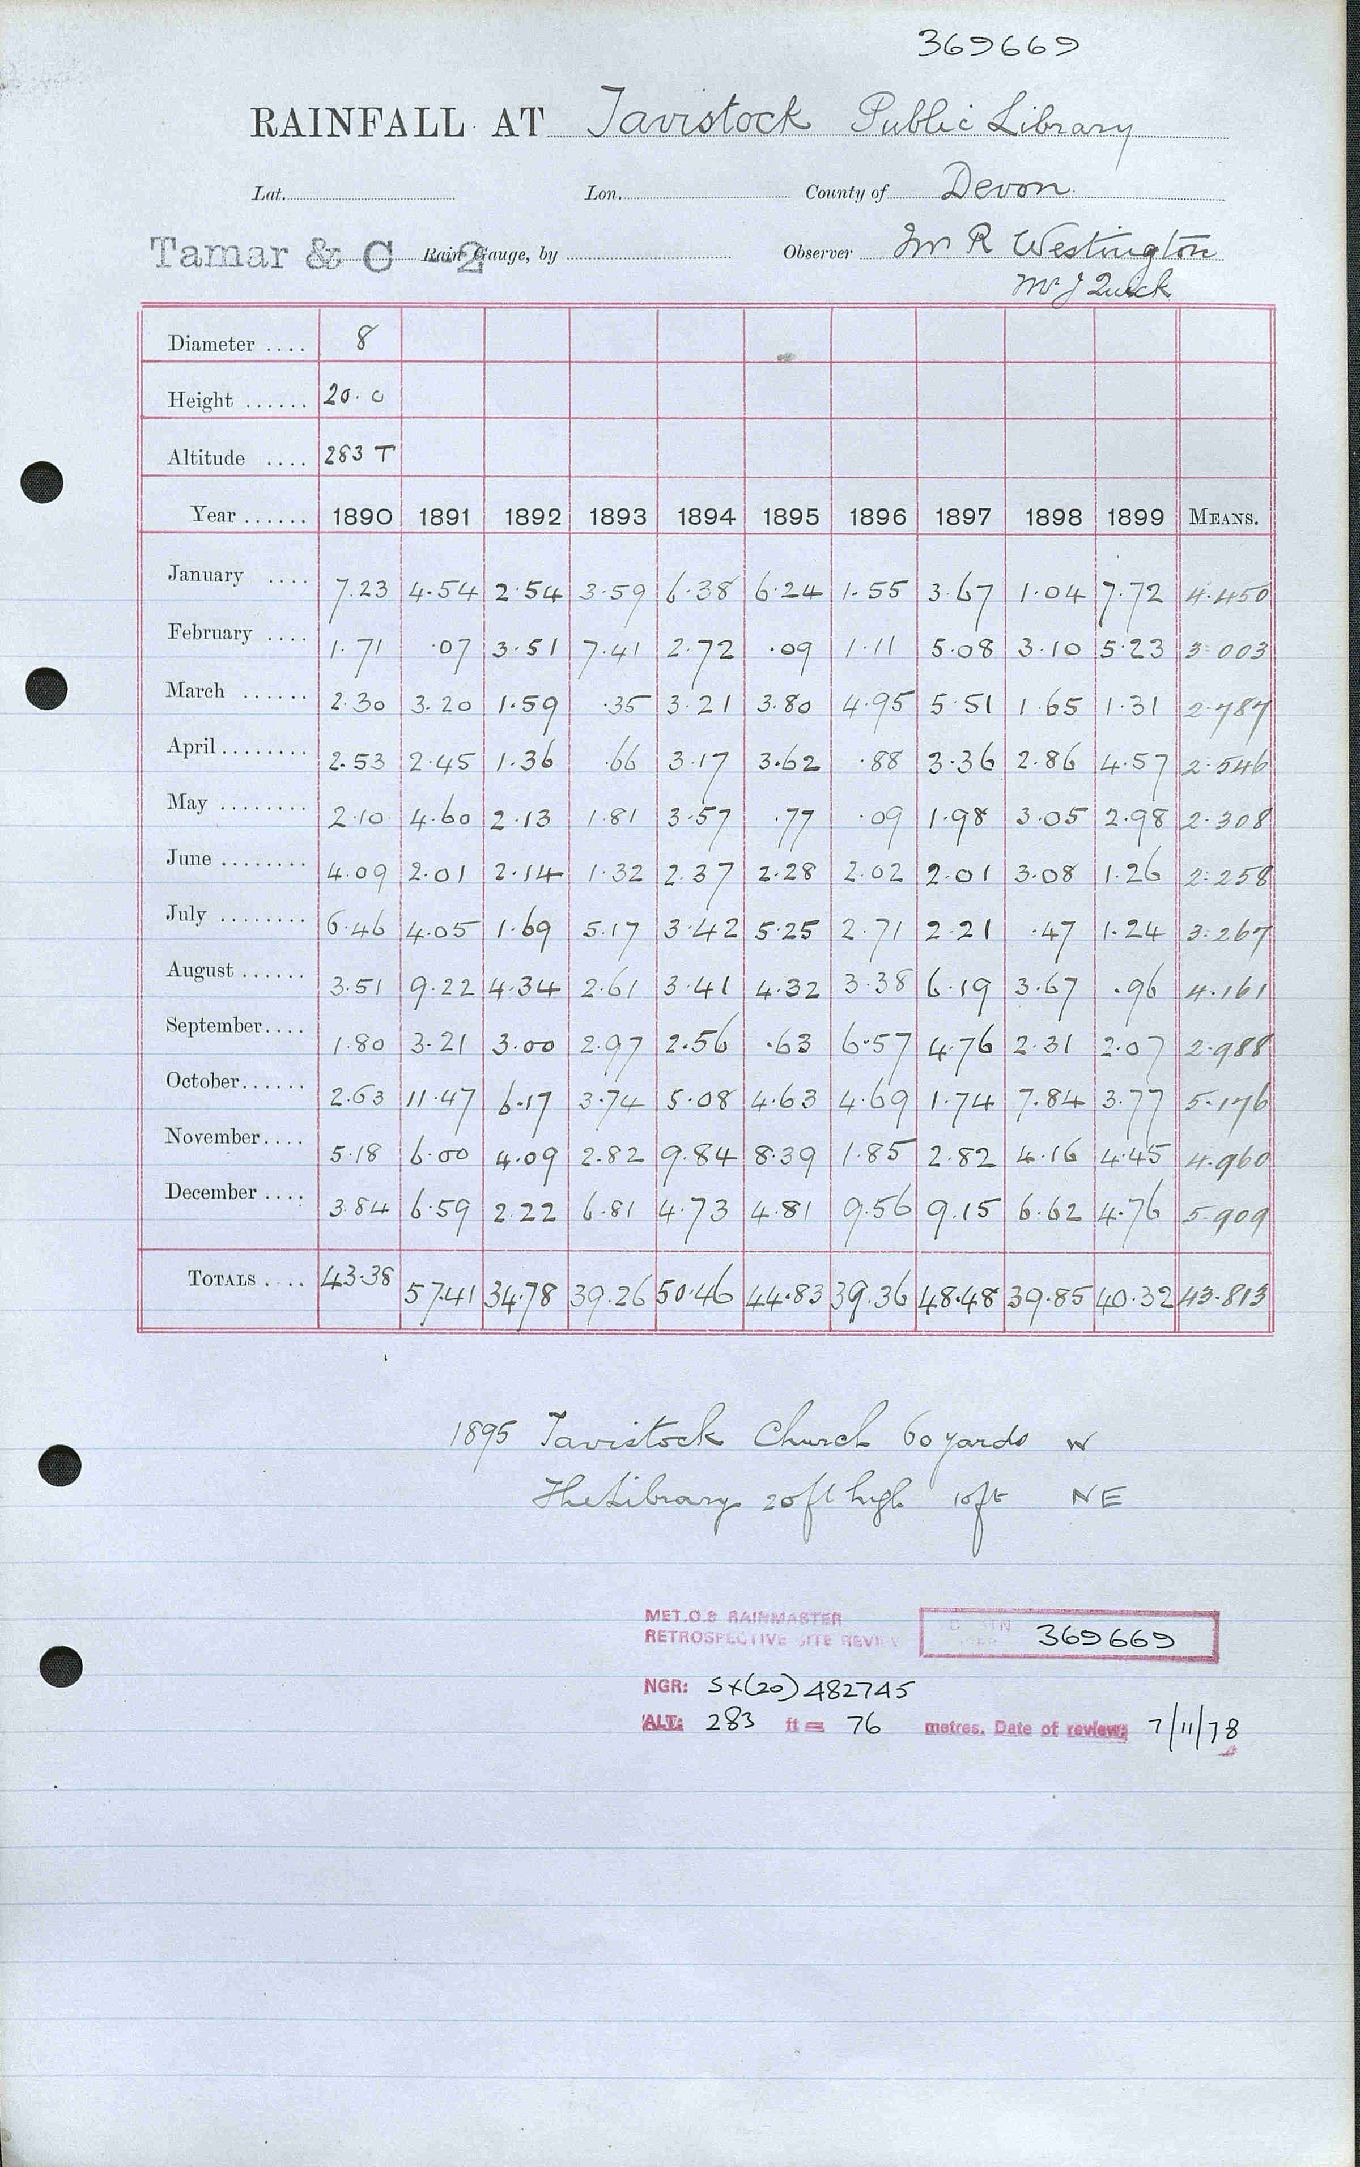 369669
RAINFALL AT Tavistock Public Library
Lat. Lon. County of Devon
Tamar & C 2 Rain Gauge, by Observer Mr R Westington
Mr J Quick
Diameter .... 8
Height ...... 20.0
Altitude .... 283 T
Year ...... 1890 1891 1892 1893 1894 1895 1896 1897 1898 1899 MEANS.
January .... 7.23 4.54 2.54 3.59 6.38 6.24 1.55 3.67 1.04 7.72 4.450
February .... 1.71 .07 3.51 7.41 2.72 .09 1.11 5.08 3.10 5.23 3.003
March ...... 2.30 3.20 1.59 .35 3.21 3.80 4.95 5.51 1.65 1.31 2.787
April ........ 2.53 2.45 1.36 .66 3.17 3.62 .88 3.36 2.86 4.57 2.546
May ........ 2.10 4.60 2.13 1.81 3.57 .77 .09 1.98 3.05 2.98 2.308
June ........ 4.09 2.01 2.14 1.32 2.37 2.28 2.02 2.01 3.08 1.26 2.258
July ........ 6.46 4.05 1.69 5.17 3.42 5.25 2.71 2.21 .47 1.24 3.267
August ...... 3.51 9.22 4.34 2.61 3.41 4.32 3.38 6.19 3.67 .96 4.161
September.... 1.80 3.21 3.00 2.97 2.56 .63 6.57 4.76 2.31 2.07 2.988
October...... 2.63 11.47 6.17 3.74 5.08 4.63 4.69 1.74 7.84 3.77 5.176
November.... 5.18 6.00 4.09 2.82 9.84 8.39 1.85 2.82 4.16 4.45 4.960
December .... 3.84 6.59 2.22 6.81 4.73 4.81 9.56 9.15 6.62 4.76 5.909
TOTALS .... 43.38 57.41 34.78 39.26 50.46 44.83 39.36 48.48 39.85 40.32 43.813
1895 Tavistock Church 60 yards W
The Library 20ft high 10ft NE
MET.O.8 RAINMASTER
RETROSPECTIVE SITE REVIEW 369669
NGR: SX(20)482745
ALT: 283 ft = 76 metres. Date of review: 7/11/78